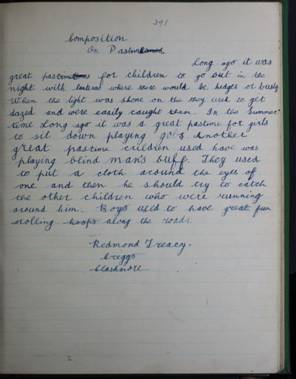 291
Composition
On Pastimes
Long ago it was
great pastime for children to go out in the
night with lanterns where there would be hedges or bushes
When the light was shone on the they used to get
dazed and were easily caught them. In the summer
time long ago it was a great pastime for girls
to sit down playing Another
great pastime children used have was
playing blind man's buff. They used
to put a cloth around the eyes of
one and then he should try to catch
the other children who were running
around him. Boys used to have great fun
rolling hoops along the roads.
Redmond Treacy.
Creggs